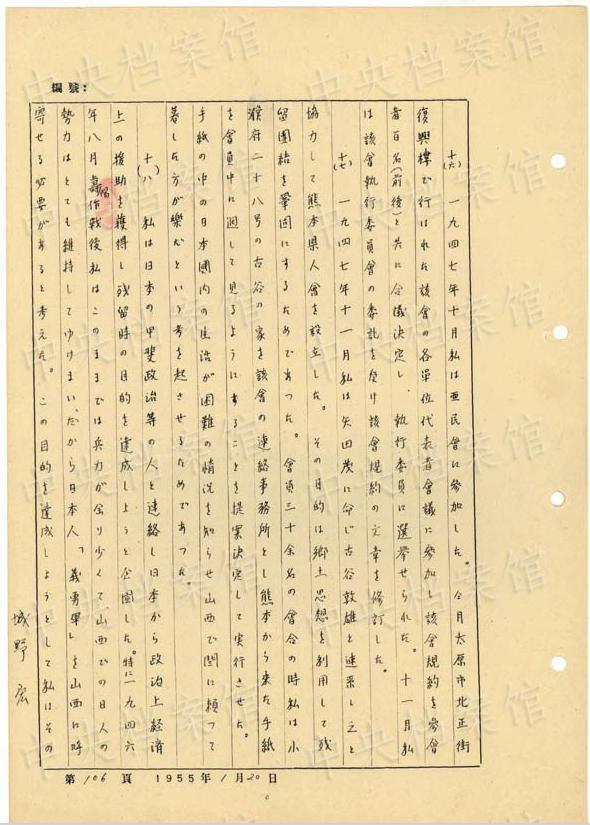 編號：
(十六) 一九四七年十月私は亜民會に参加した。仝月太原市北正街
復興樓で行はれた該會の各單位代表者會議に参加し該會規約を参會
者百名(前後)と共に合議決定し、執行委員に選挙せられた。十一月私
は該會執行委員會の委託を受け該會規約の文章を修訂した。
(十七) 一九四七年十一月私は矢田茂に命じ古谷敦雄と連系し之と
協力して熊本県人會を設立した。その目的は郷土思想を利用して残
留團結を鞏固にするためであつた。會員三十余名の會合の時私は小
濮府二十八号の古谷の家を該會の連絡事務所とし熊本から来た手紙
を會員中に迴して見るようにすることを提案決定して実行させた。
手紙の中の日本國内の生活が困難の情況を知らせ山西で閻に頼つて
暮した方が樂だという考を起させるためであつた。
(十八) 私は日本の甲斐政治等の人と連絡し日本から政治上経済
上の援助を獲得し残留時の目的を達成しようと企圖した。特に一九四六
年八月 作戦後私はこのままでは兵力が余り少くて山西での日人の
勢力はとても維持してゆけまい、だから日本人「義勇軍」を山西に呼
寄せる必要があると考えた。この目的を達成しようとして私はその
城野宏
第106頁 1955年1月20日
中央档案馆